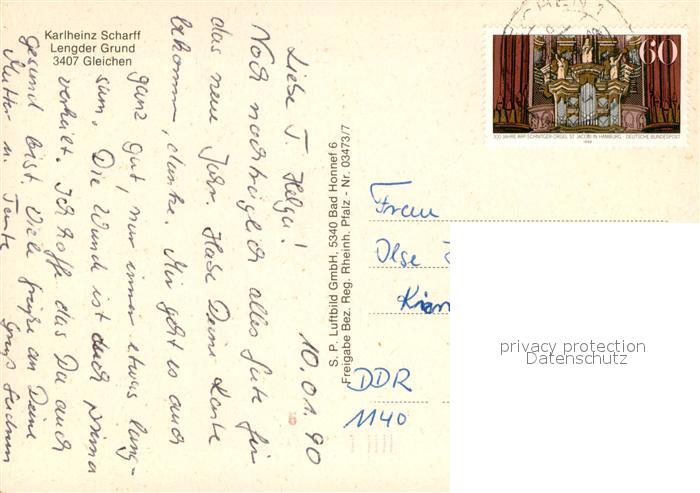 Karlheinz Scharff
Lengder Grund
3407 Gleichen
10.01.90
Liebe T. Helga!
Noch nachträglich alles Gute für
das neue Jahr. Habe Deine Karte
bekommen, danke. Mir geht es auch
ganz gut, nur immer etwas lang-
sam. Die Wunde ist auch prima
verheilt. Ich hoffe das Du auch
gesund bist. Viele Grüße an Deine
Mutter u. Tante Gruß
S. P. Luftbild GmbH, 5340 Bad Honnef 6
Freigabe Bez. Reg. Rheinh. Pfalz - Nr. 03473/7
60
300 JAHRE ARP-SCHNITGER-ORGEL ST. JACOBI IN HAMBURG · DEUTSCHE BUNDESPOST
1989
Frau
Ilse
DDR
1140
privacy protection
Datenschutz